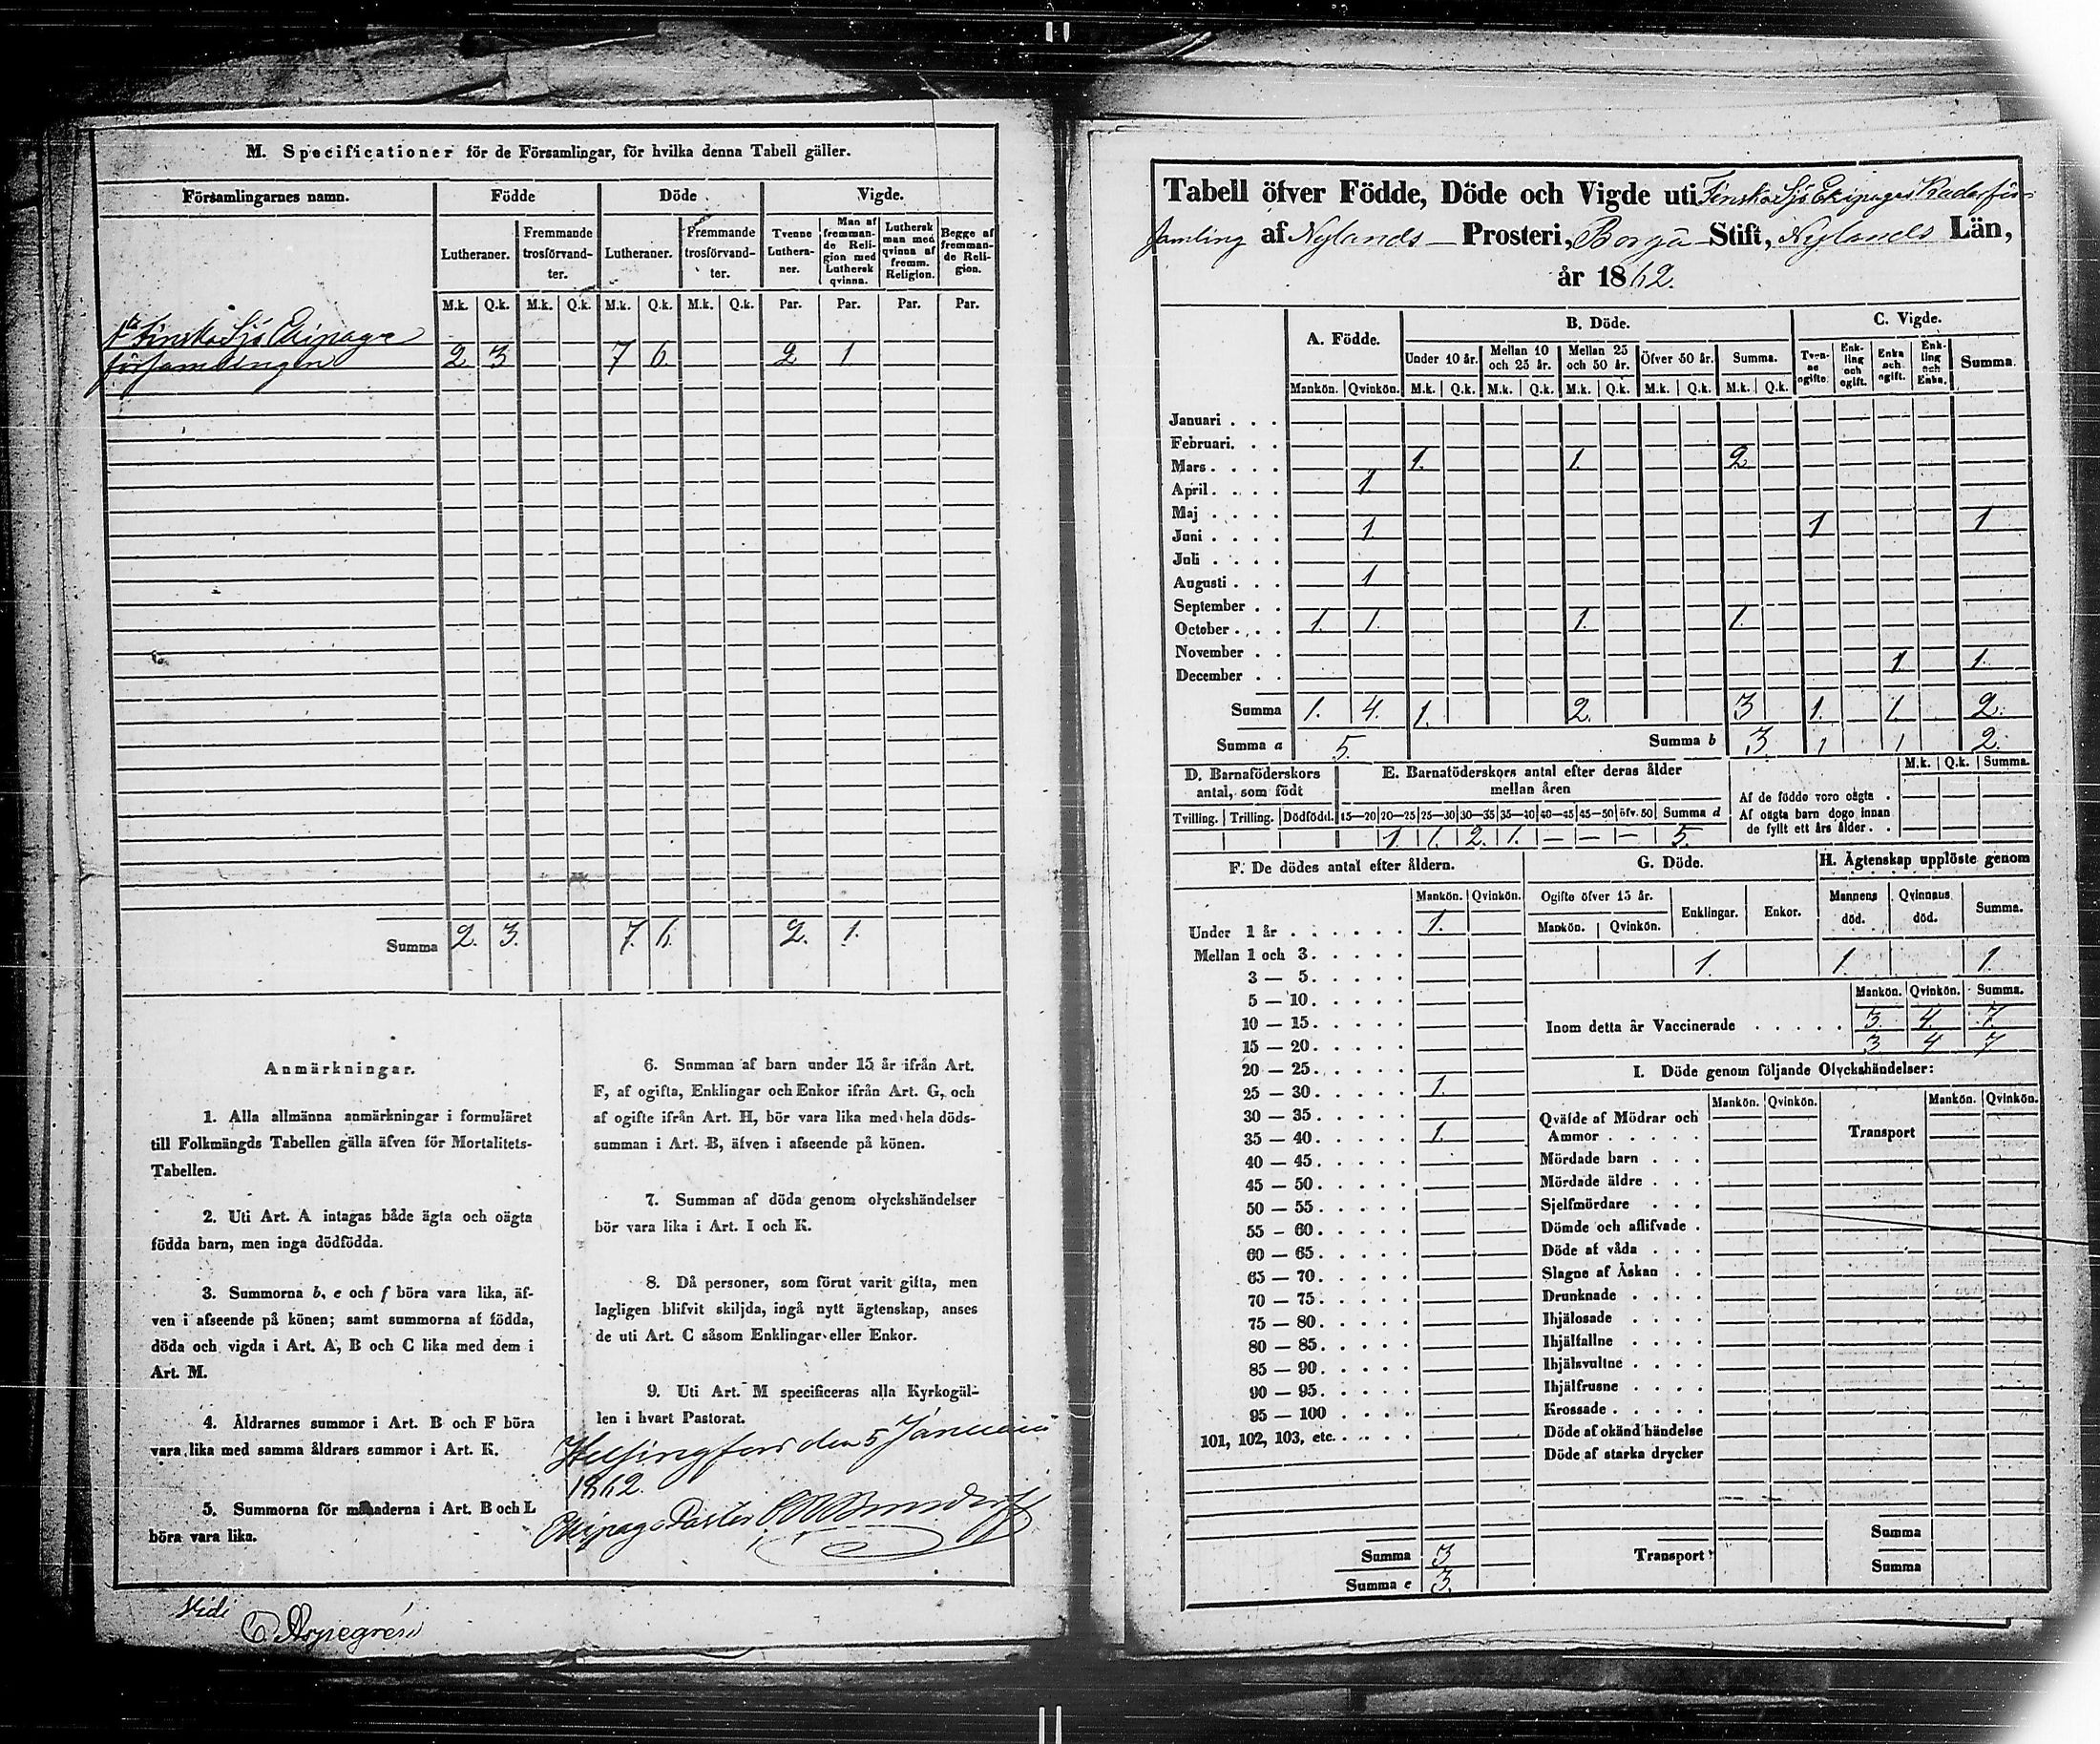 M. Specificationer för de Församlingar, för hvilka denna Tabell gäller.
Församlingarnes namn. Födde Döde Vigde.
Lutheraner. Fremmande trosförvandter. Lutheraner. Fremmande trosförvandter. Tvenne Lutheraner. Man af fremmande Religion med Luthersk qvinna. Luthersk man med qvinna af fremm. Religion. Begge af fremmande Religion.
M.k. Q.k. M.k. Q.k. M.k. Q.k. M.k. Q.k. Par. Par. Par. Par.
1a Finska Sjö Ekipage
församlingen 2. 3. 7 6. 2 1
Summa 2. 3. 7. 6. 2. 1.
Anmärkningar.
1. Alla allmänna anmärkningar i formuläret
till Folkmängds Tabellen gälla äfven för Mortalitets-
Tabellen.
2. Uti Art. A intagas både ägta och oägta
födda barn, men inga dödfödda.
3. Summorna b, e och f böra vara lika, äf-
ven i afseende på könen; samt summorna af födda,
döda och vigda i Art. A, B och C lika med dem i
Art. M.
4. Åldrarnes summor i Art. B och F böra
vara lika med samma åldrars summor i Art. K.
5. Summorna för månaderna i Art. B och L
böra vara lika.
6. Summan af barn under 15 år ifrån Art.
F, af ogifta, Enklingar och Enkor ifrån Art. G, och
af ogifte ifrån Art. H, bör vara lika med hela döds-
summan i Art. B, äfven i afseende på könen.
7. Summan af döda genom olyckshändelser
bör vara lika i Art. I och K.
8. Då personer, som förut varit gifta, men
lagligen blifvit skiljda, ingå nytt ägtenskap, anses
de uti Art. C såsom Enklingar eller Enkor.
9. Uti Art. M specificeras alla Kyrkogäl-
len i hvart Pastorat.
Helsingfors den 5 Januari
1862.
Ekipage Pastor
Vidi
Aspegrén
Tabell öfver Födde, Döde och Vigde uti Finska Sjö Ekipages Kaderför-
samling af Nylands Prosteri, Borgå Stift, Nylands Län,
år 1862.
A. Födde. B. Döde. C. Vigde.
Under 10 år. Mellan 10 och 25 år. Mellan 25 och 50 år. Öfver 50 år. Summa. Tvenne ogifte. Enkling och ogift. Enka och ogift. Enkling och Enka. Summa.
Mankön. Qvinkön. M.k. Q.k. M.k. Q.k. M.k. Q.k. M.k. Q.k. M.k. Q.k.
Januari . . .
Februari. . .
Mars . . . . 1. 1. 2
April. . . . 1.
Maj . . . .
Juni . . . . 1. 1 1
Juli . . . .
Augusti . . . 1
September . .
October . . . 1. 1. 1. 1.
November . .
December . . 1. 1.
Summa 1. 4. 1. 2. 3 1. 1. 2.
Summa a 5. Summa b 3. 1 1 2.
D. Barnaföderskors antal, som födt E. Barnaföderskors antal efter deras ålder mellan åren
Tvilling. Trilling. Dödfödd. 15—20 20—25 25—30 30—35 35—40 40—45 45—50 öfv. 50 Summa d
1. 1. 2. 1. — — — 5.
M.k. Q.k. Summa.
Af de födde voro oägta .
Af oägta barn dogo innan
de fyllt ett års ålder. .
F. De dödes antal efter åldern.
Mankön. Qvinkön.
Under 1 år . . . . . . 1.
Mellan 1 och 3. . . . .
3 — 5. . . . .
5 — 10. . . . .
10 — 15. . . . .
15 — 20. . . . .
20 — 25. . . . .
25 — 30. . . . . 1.
30 — 35. . . . .
35 — 40. . . . . 1.
40 — 45. . . . .
45 — 50. . . . .
50 — 55. . . . .
55 — 60. . . . .
60 — 65. . . . .
65 — 70. . . . .
70 — 75. . . . .
75 — 80. . . . .
80 — 85. . . . .
85 — 90. . . . .
90 — 95. . . . .
95 — 100 . . . .
101, 102, 103, etc. . . . .
Summa 3
Summa e 3.
G. Döde.
Ogifte öfver 15 år. Enklingar. Enkor.
Mankön. Qvinkön.
1.
H. Ägtenskap upplöste genom
Mannens död. Qvinnans död. Summa.
1. 1.
Mankön. Qvinkön. Summa.
Inom detta år Vaccinerade . . . . . 3. 4. 7.
3. 4 7
I. Döde genom följande Olyckshändelser:
Mankön. Qvinkön. Mankön. Qvinkön.
Qväfde af Mödrar och
Ammor . . . . . Transport
Mördade barn . . .
Mördade äldre . . .
Sjelfmördare . . .
Dömde och aflifvade .
Döde af våda . . .
Slagne af Åskan . .
Drunknade . . . .
Ihjälosade . . . .
Ihjälfallne . . . .
Ihjälsvultne . . . .
Ihjälfrusne . . . .
Krossade . . . . .
Döde af okänd händelse
Döde af starka drycker
Summa
Transport Summa